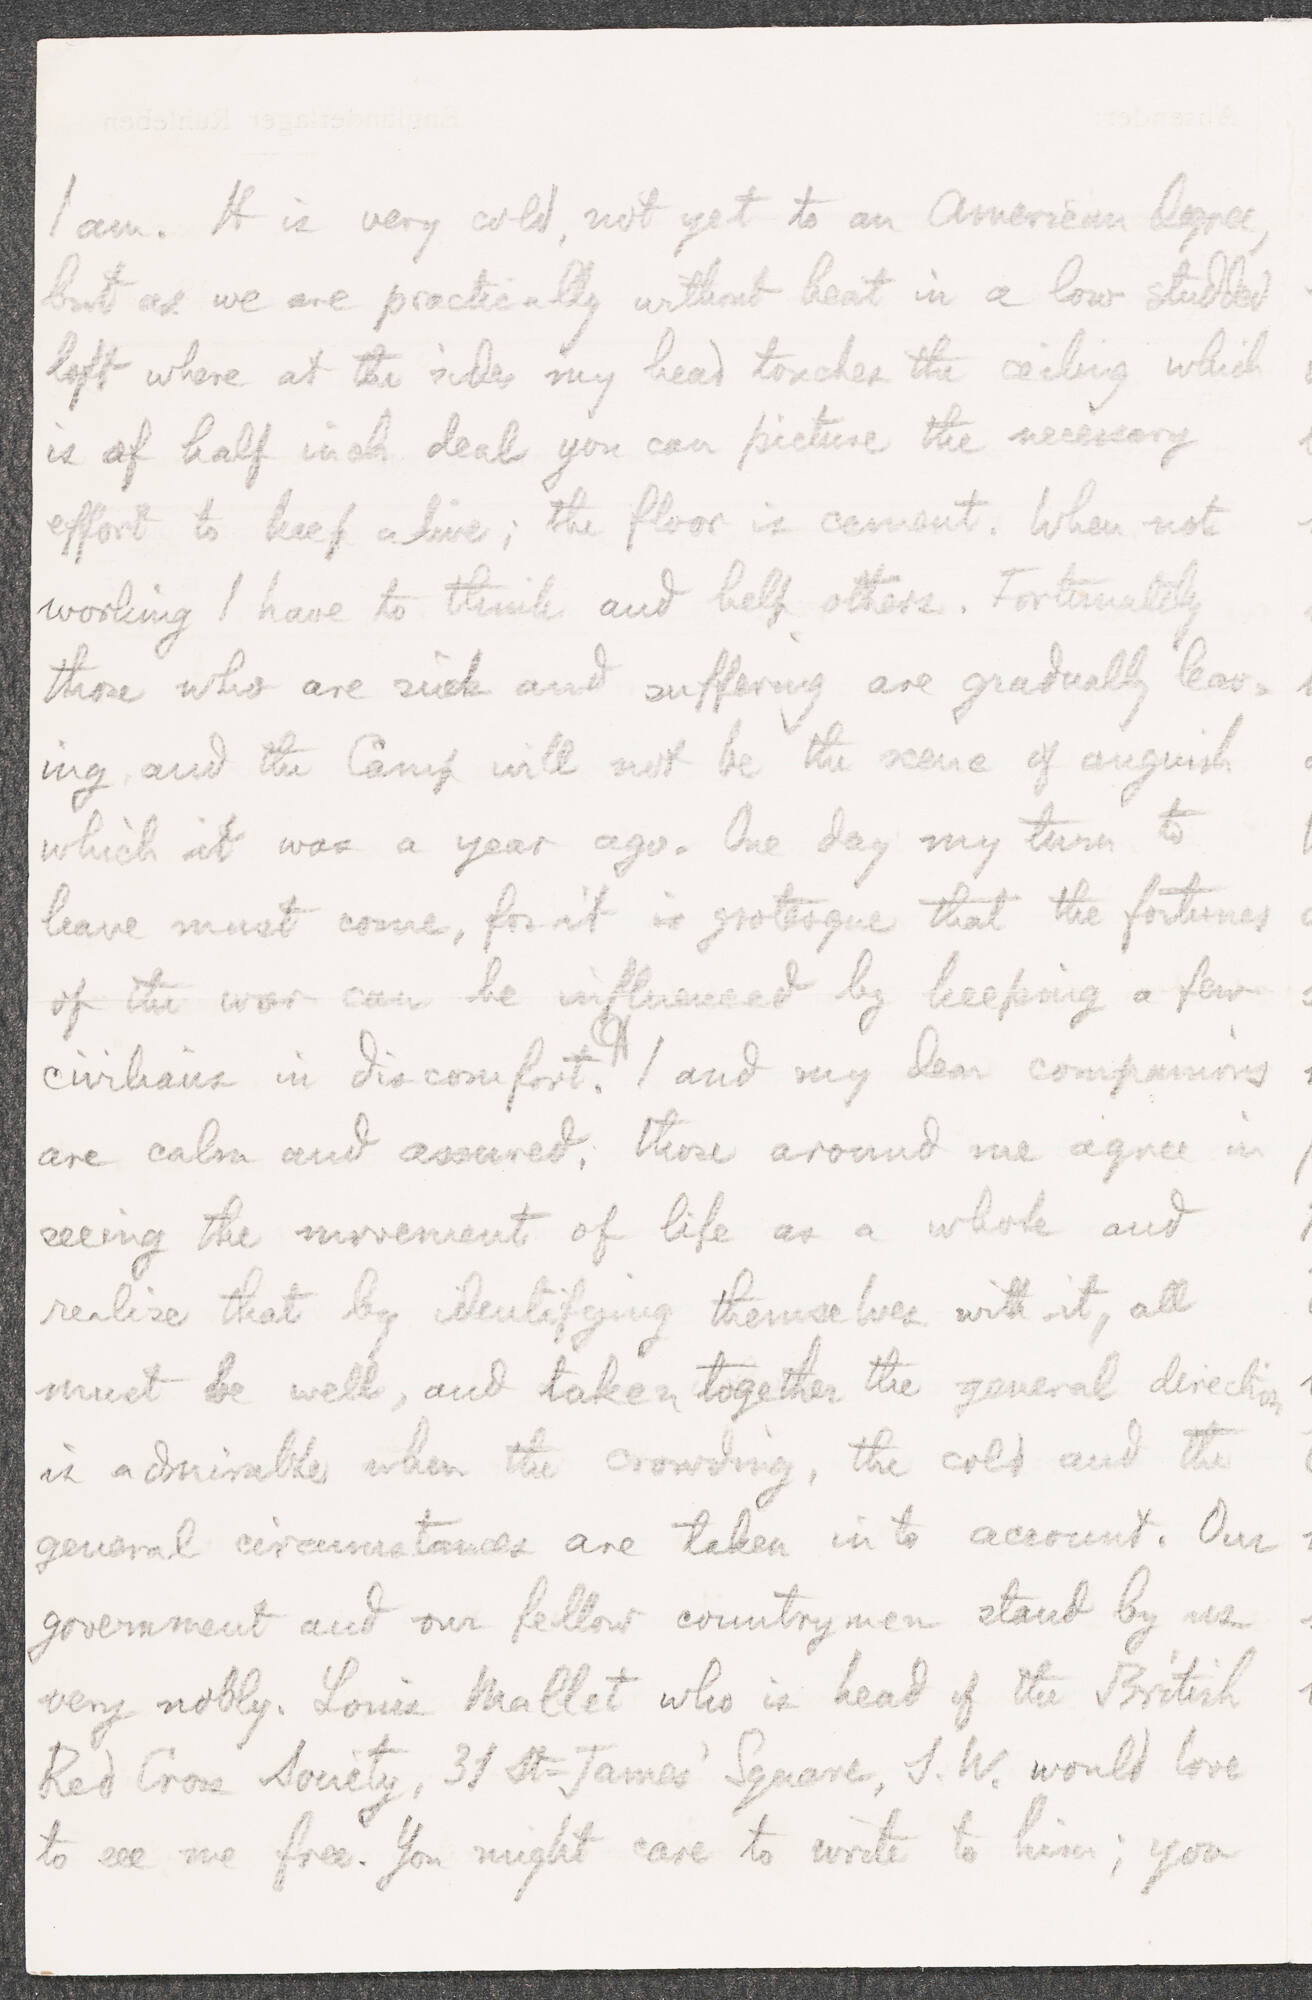 I am. It is very cold, not yet to an American degree,
but as we are practically without heat in a low studded
loft where at the sides my head touches the ceiling which
is of half inch deal you can picture the necessary
effort to keep alive; the floor is cement. When not
working I have to think and help others. Fortunately
those who are sick and suffering are gradually leav-
ing and the Camp will not be the scene of anguish
which it was a year ago. One day my turn to
leave must come, for it is grotesque that the fortunes
of the war can be influenced by keeping a few
civilians in discomfort. I and my dear companions
are calm and assured, those around me agree in
seeing the movement of life as a whole and
realise that by identifying themselves with it, all
must be well, and taken together the general direction
is admirable when the crowding, the cold and the
general circumstances are taken into account. Our
government and our fellow countrymen stand by us
very nobly. Louis Mallet who is head of the British
Red Cross Society, 31 St James' Square, S.W. would love
to see me free. You might care to write to him; you